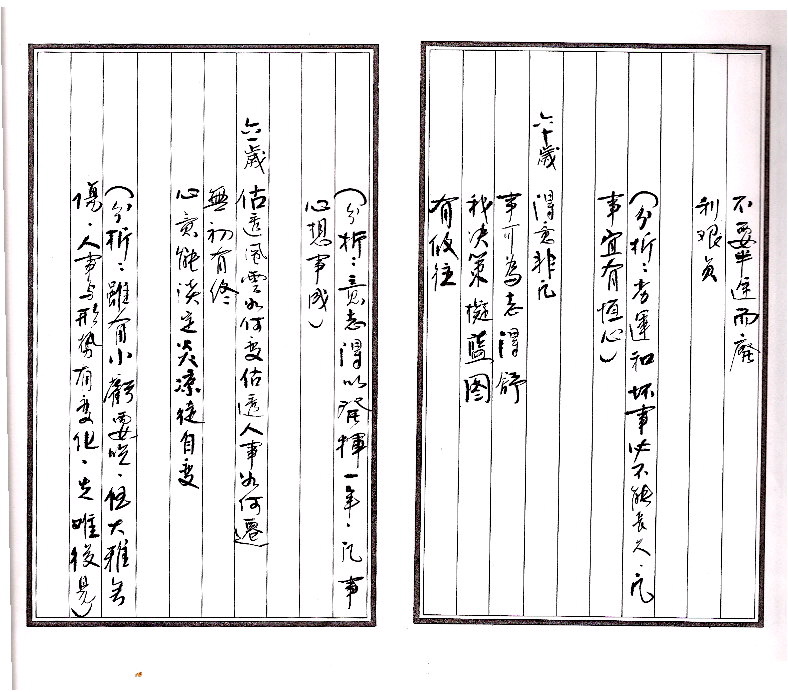 不要半途而廢
利艱貞
(分析：劣運和坏事必不能長久．凡
事宜有恒心)
六十歲 得意非凡
事可為志得舒
我決策擬藍图
有攸往
(分析：意志得以發揮一年．凡事
心想事成)
六一歲 估透風雲如何变估透人事如何遷
無初有終
心意能淡定炎凉徒自变
(分析：雖有小虧要吃．但大雅無
傷．人事与形势有变化．先睢後見)